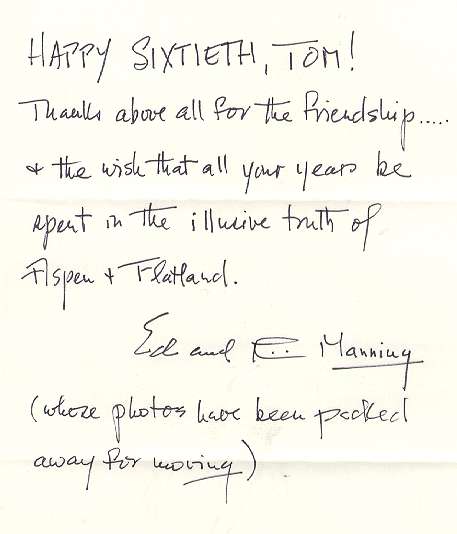 HAPPY SIXTIETH, TOM!
Thanks above all for the friendship.....
& the wish that all your years be
spent in the illusive truth of
Aspen & Flatland.
Ed and E.. Manning
(whose photos have been packed
away for moving)